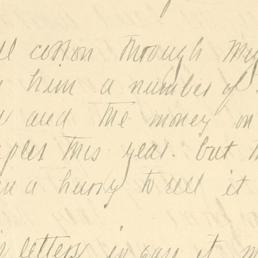 cotton through my
him a number of
and the money on
this year. but
in a hurry to sell it
letters in case it